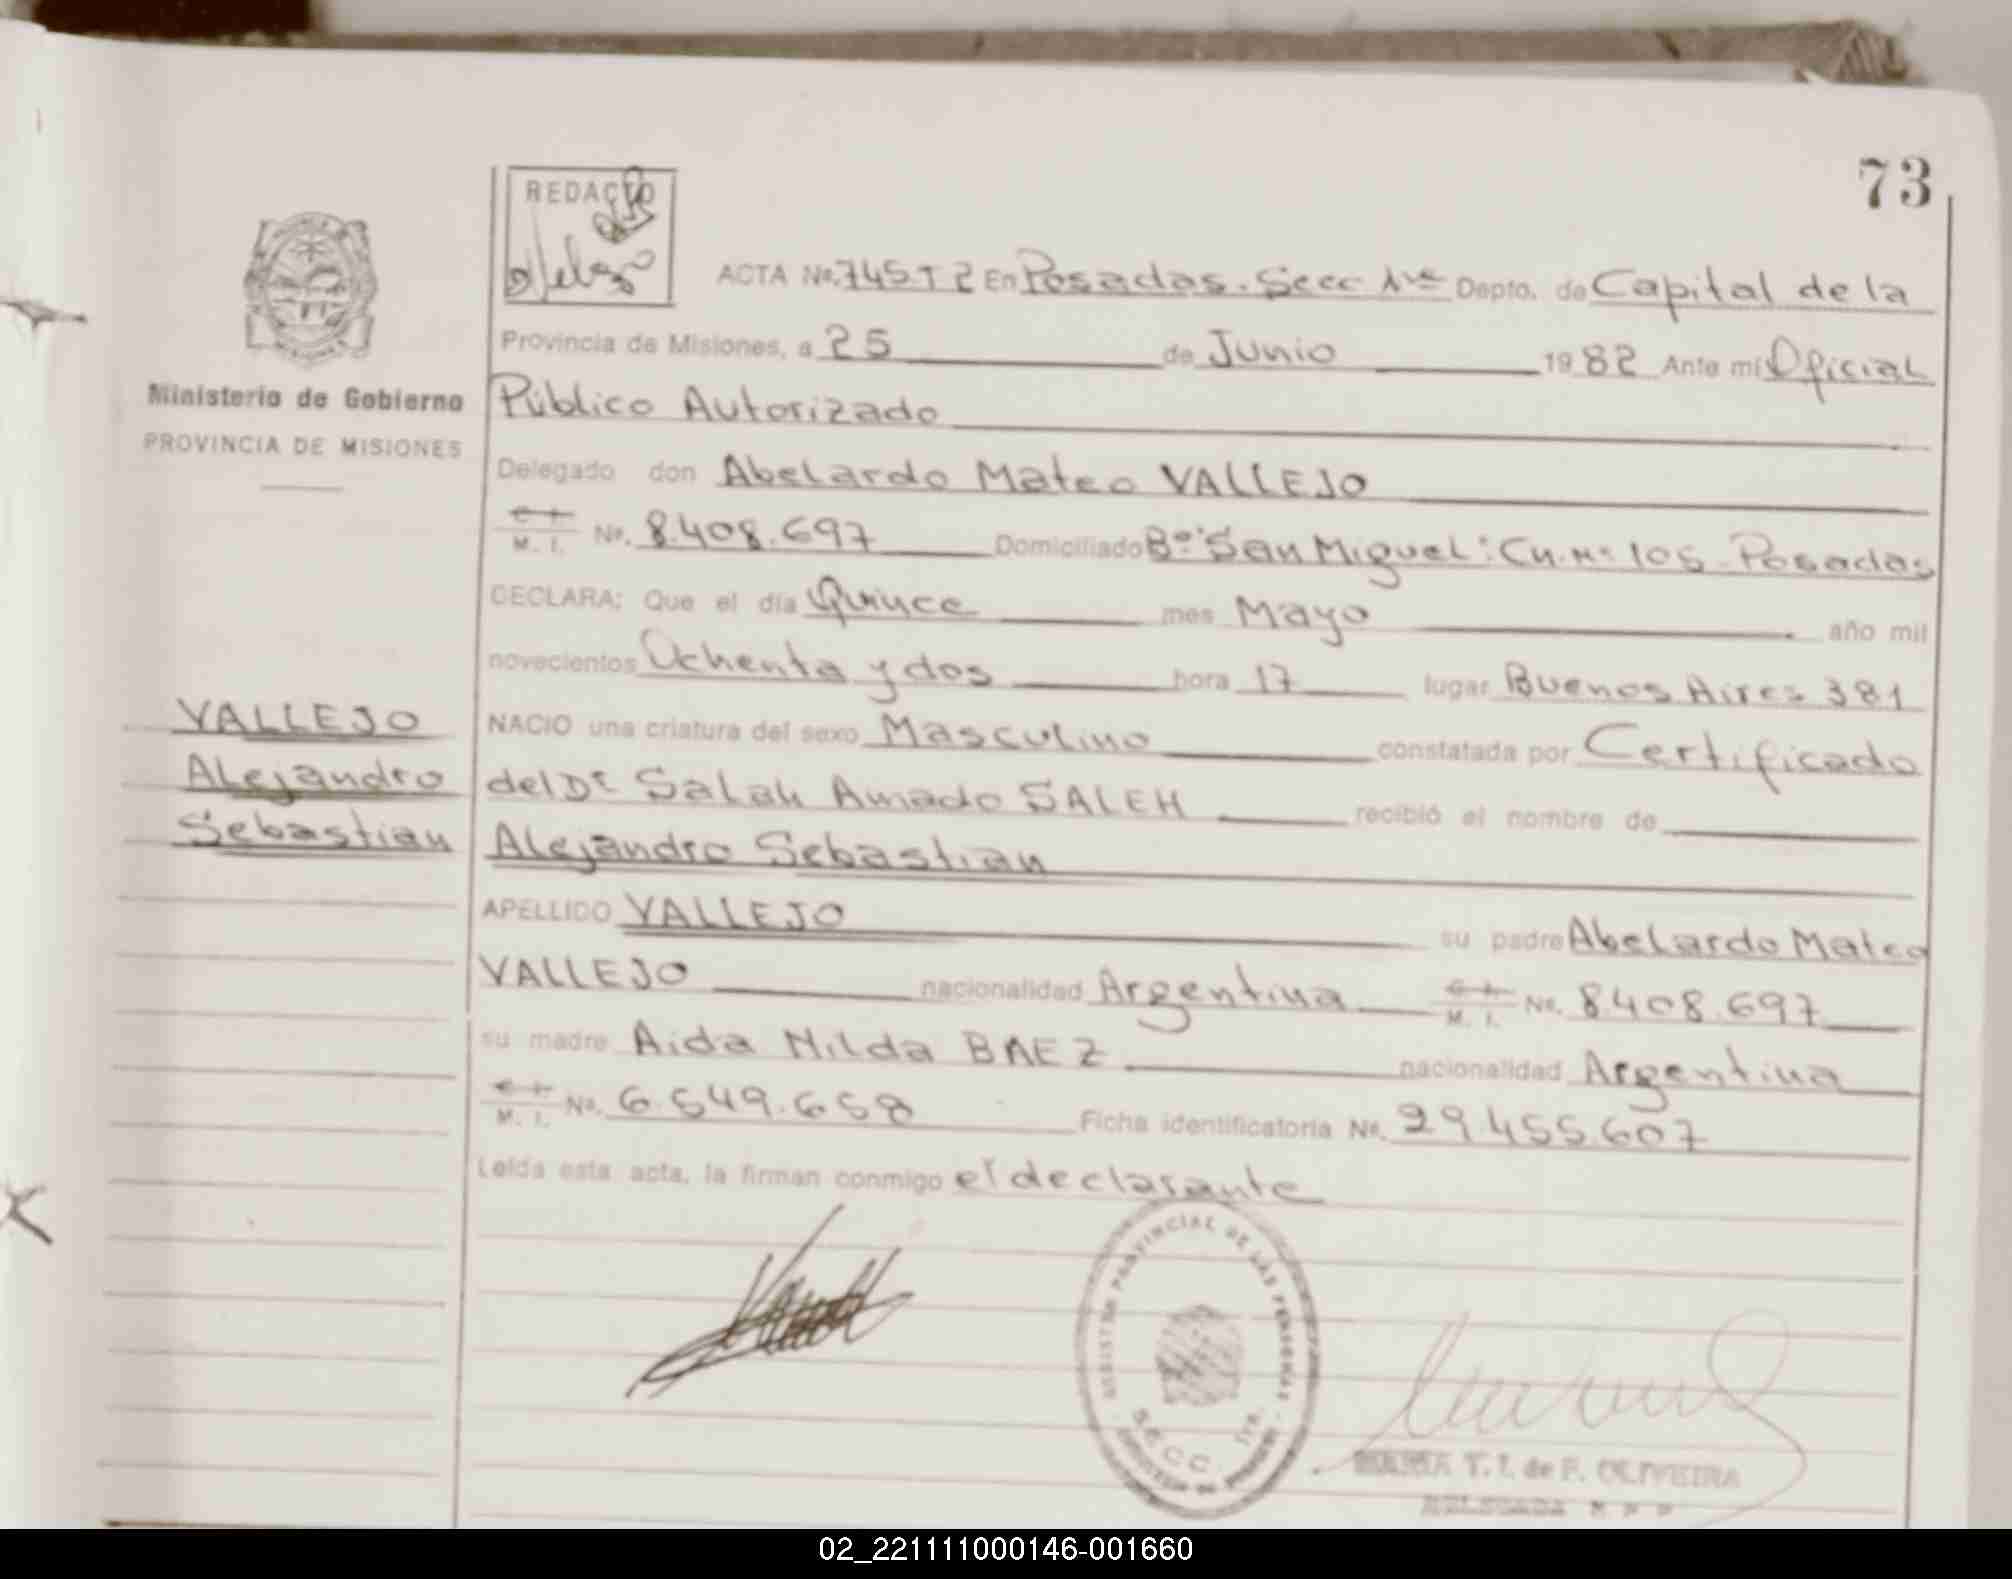 73
REDACTO
ACTA No. 745.T 2 En Posadas. Secc 1ra Depto. de Capital de la
Provincia de Misiones, a 25 de Junio 1982 Ante mí Oficial
Ministerio de Gobierno
Público Autorizado
PROVINCIA DE MISIONES
Delegado don Abelardo Mateo VALLEJO
C. I. M. I. No. 8.408.697 Domiciliado Bº "San Miguel" Ch. Nº 105 - Posadas
DECLARA: Que el día Quince mes Mayo año mil
novecientos Ochenta y dos hora 17 lugar Buenos Aires 381
VALLEJO
NACIO una criatura del sexo Masculino constatada por Certificado
Alejandro
del Dr Salah Amado SALEH recibió el nombre de
Sebastian
Alejandro Sebastian
APELLIDO VALLEJO su padre Abelardo Mateo
VALLEJO nacionalidad Argentina C. I. M. I. No. 8.408.697
su madre Aida Nilda BAEZ nacionalidad Argentina
C. I. M. I. No. 6.549.658 Ficha identificatoria No. 29.455.607
Leída esta acta, la firman conmigo el declarante
REGISTRO PROVINCIAL DE LAS PERSONAS
SECC. 1ra.
MARIA T. I. de F. OLIVEIRA
DELEGADA R P P
02_221111000146-001660